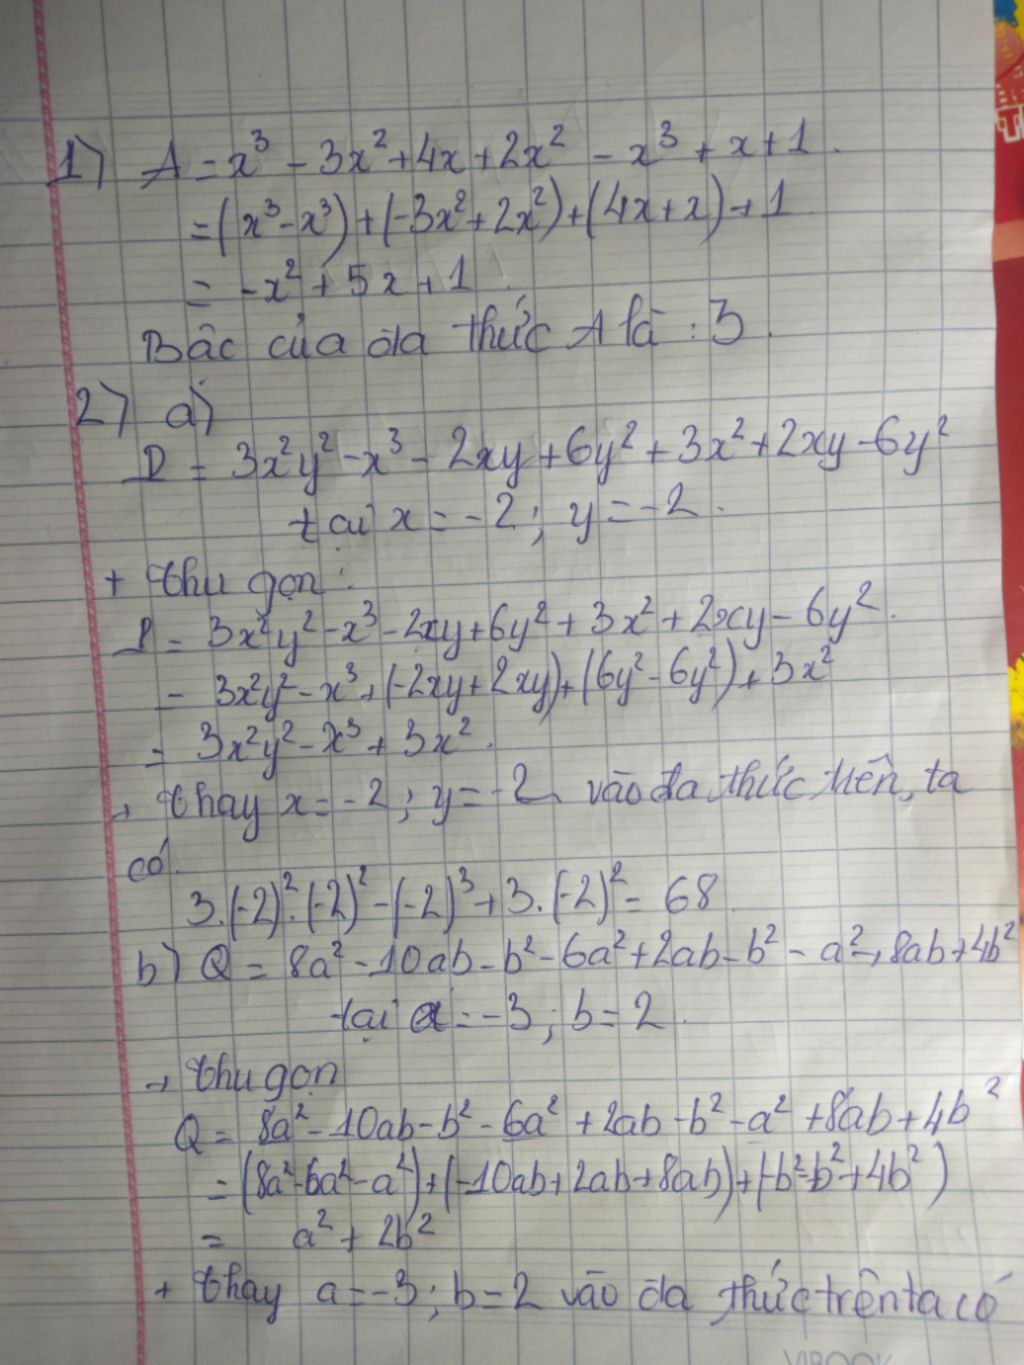 1) A = x³ - 3x² + 4x + 2x² - x³ + x + 1.
= (x³ - x³) + (-3x² + 2x²) + (4x + x) + 1
= -x² + 5x + 1.
Bậc của đa thức A là : 3.
2) a)
P = 3x²y² - x³ - 2xy + 6y² + 3x² + 2xy - 6y²
tại x = -2; y = -2.
+ thu gọn :
P = 3x²y² - x³ - 2xy + 6y² + 3x² + 2xy - 6y².
= 3x²y² - x³ + (-2xy + 2xy) + (6y² - 6y²) + 3x²
= 3x²y² - x³ + 3x².
+ thay x = -2; y = -2 vào đa thức trên, ta
có.
3.(-2)².(-2)² - (-2)³ + 3.(-2)² = 68
b) Q = 8a² - 10ab - b² - 6a² + 2ab - b² - a² + 8ab + 4b²
tại a = -3; b = 2.
+ thu gọn
Q = 8a² - 10ab - b² - 6a² + 2ab - b² - a² + 8ab + 4b²
= (8a² - 6a² - a²) + (-10ab + 2ab + 8ab) + (-b² - b² + 4b²)
= a² + 2b²
+ thay a = -3; b = 2 vào đa thức trên ta có
VIBOOK